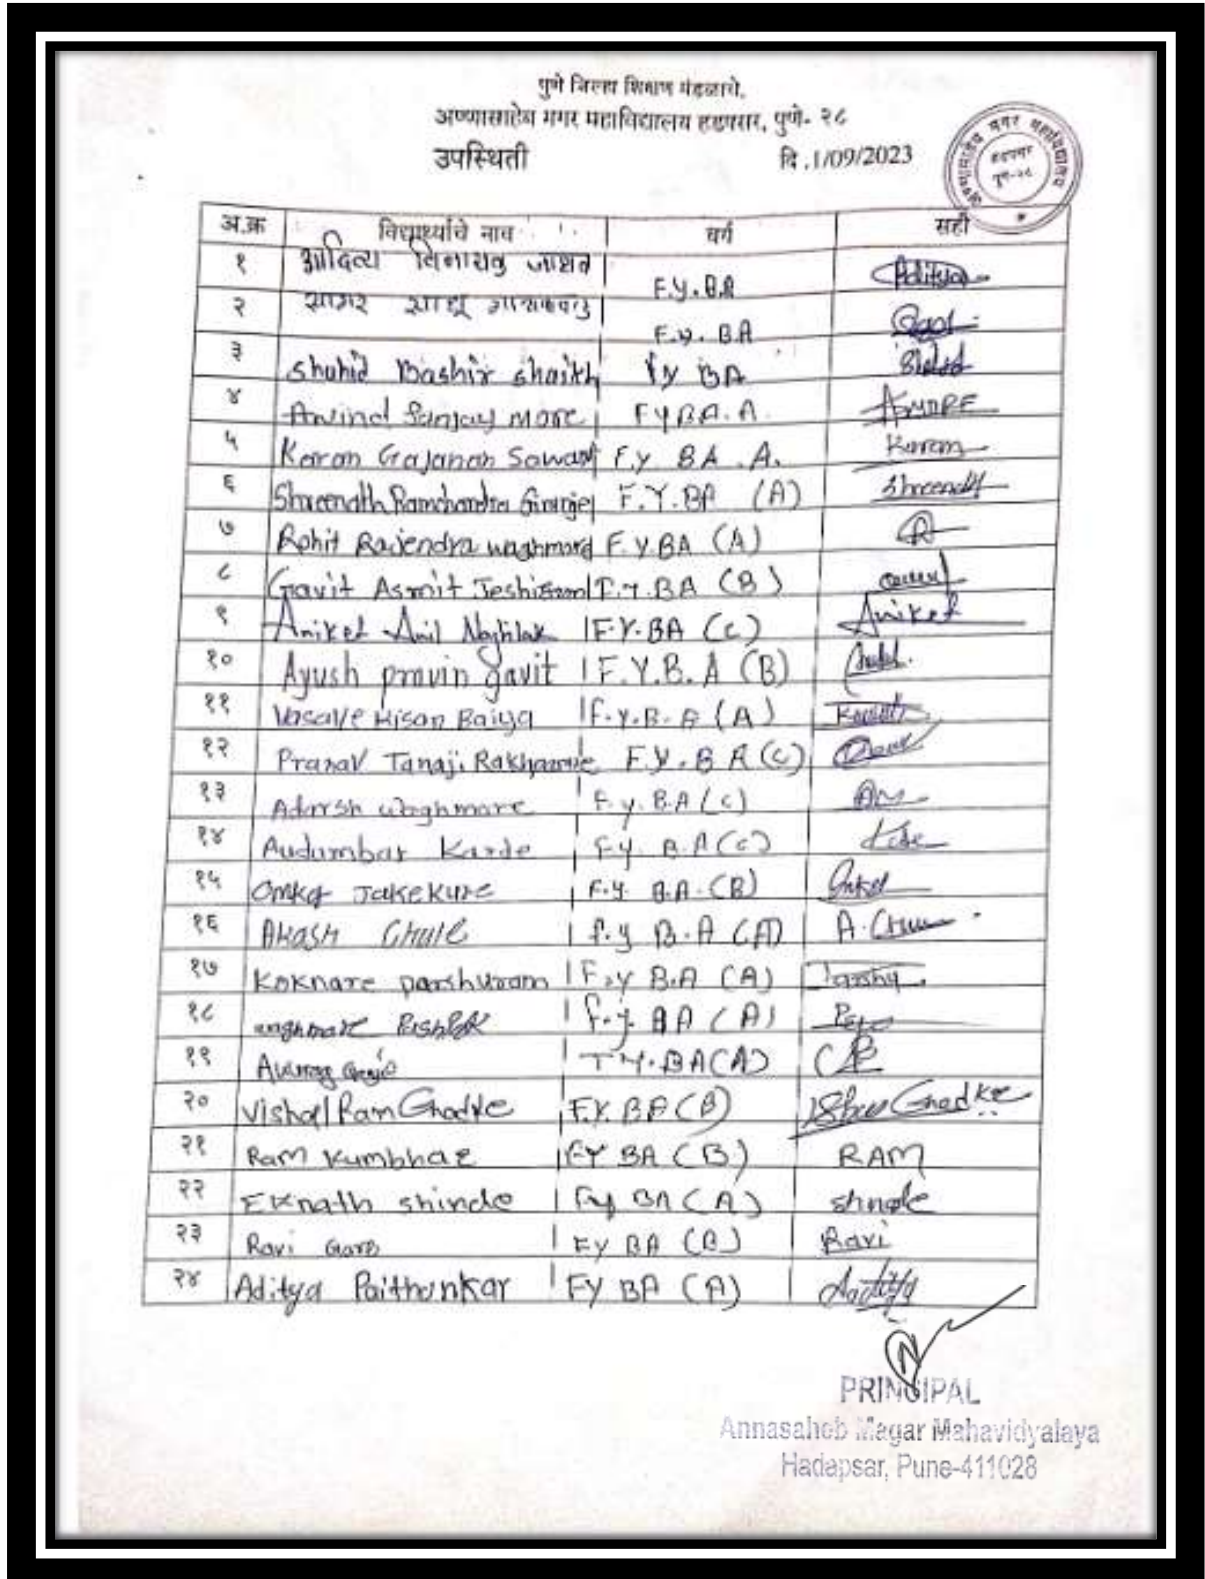 पुणे जिल्हा शिक्षण मंडळाचे,
अण्णासाहेब मगर महाविद्यालय हडपसर, पुणे- २८
उपस्थिती दि .1/09/2023
अण्णासाहेब मगर महाविद्यालय
हडपसर
पुणे-२८
अ.क्र विद्यार्थ्याचे नाव वर्ग सही
१ आदित्य विनायक जाधव F.Y.BA Aditya
२ सागर साधू गायकवाड F.Y. BA
३ Shahid Bashir shaikh Fy BA Shahid
४ Arvind Sanjay more FYBA.A. AMORE
५ Karan Gajanan Sawant F.Y BA .A. Karan
६ Shreenath Ramchandra F.Y.BA (A) Shreenath
७ Rohit Rajendra waghmare F.Y.BA (A)
८ Gavit Asmit F.Y.BA (B)
९ Aniket Anil F.Y.BA (C) Aniket
१० Ayush pravin gavit F.Y.B.A (B)
११ Vasave Kisan Baiya F.y.B.A (A)
१२ Pranav Tanaji F.Y.B A (C)
१३ Adarsh waghmare F.y.B.A (C)
१४ Audumbar Karde F.y. B.A (C)
१५ Jakekure F.y. B.A.(B)
१६ Akash Ghule F.y B.A (A)
१७ Koknare parshuram F.Y B.A (A)
१८ waghmare F.y. BA (A)
१९ Anurag T.Y.BA(A)
२० Vishal Ram Ghodke F.Y.BA(B)
२१ Ram Kumbhar FY BA (B) RAM
२२ EKnath shinde Fy BA (A) shinde
२३ Ravi FY BA (B) Ravi
२४ Aditya Paithankar FY BA (A) Aaditya
PRINCIPAL
Annasaheb Magar Mahavidyalaya
Hadapsar, Pune-411028